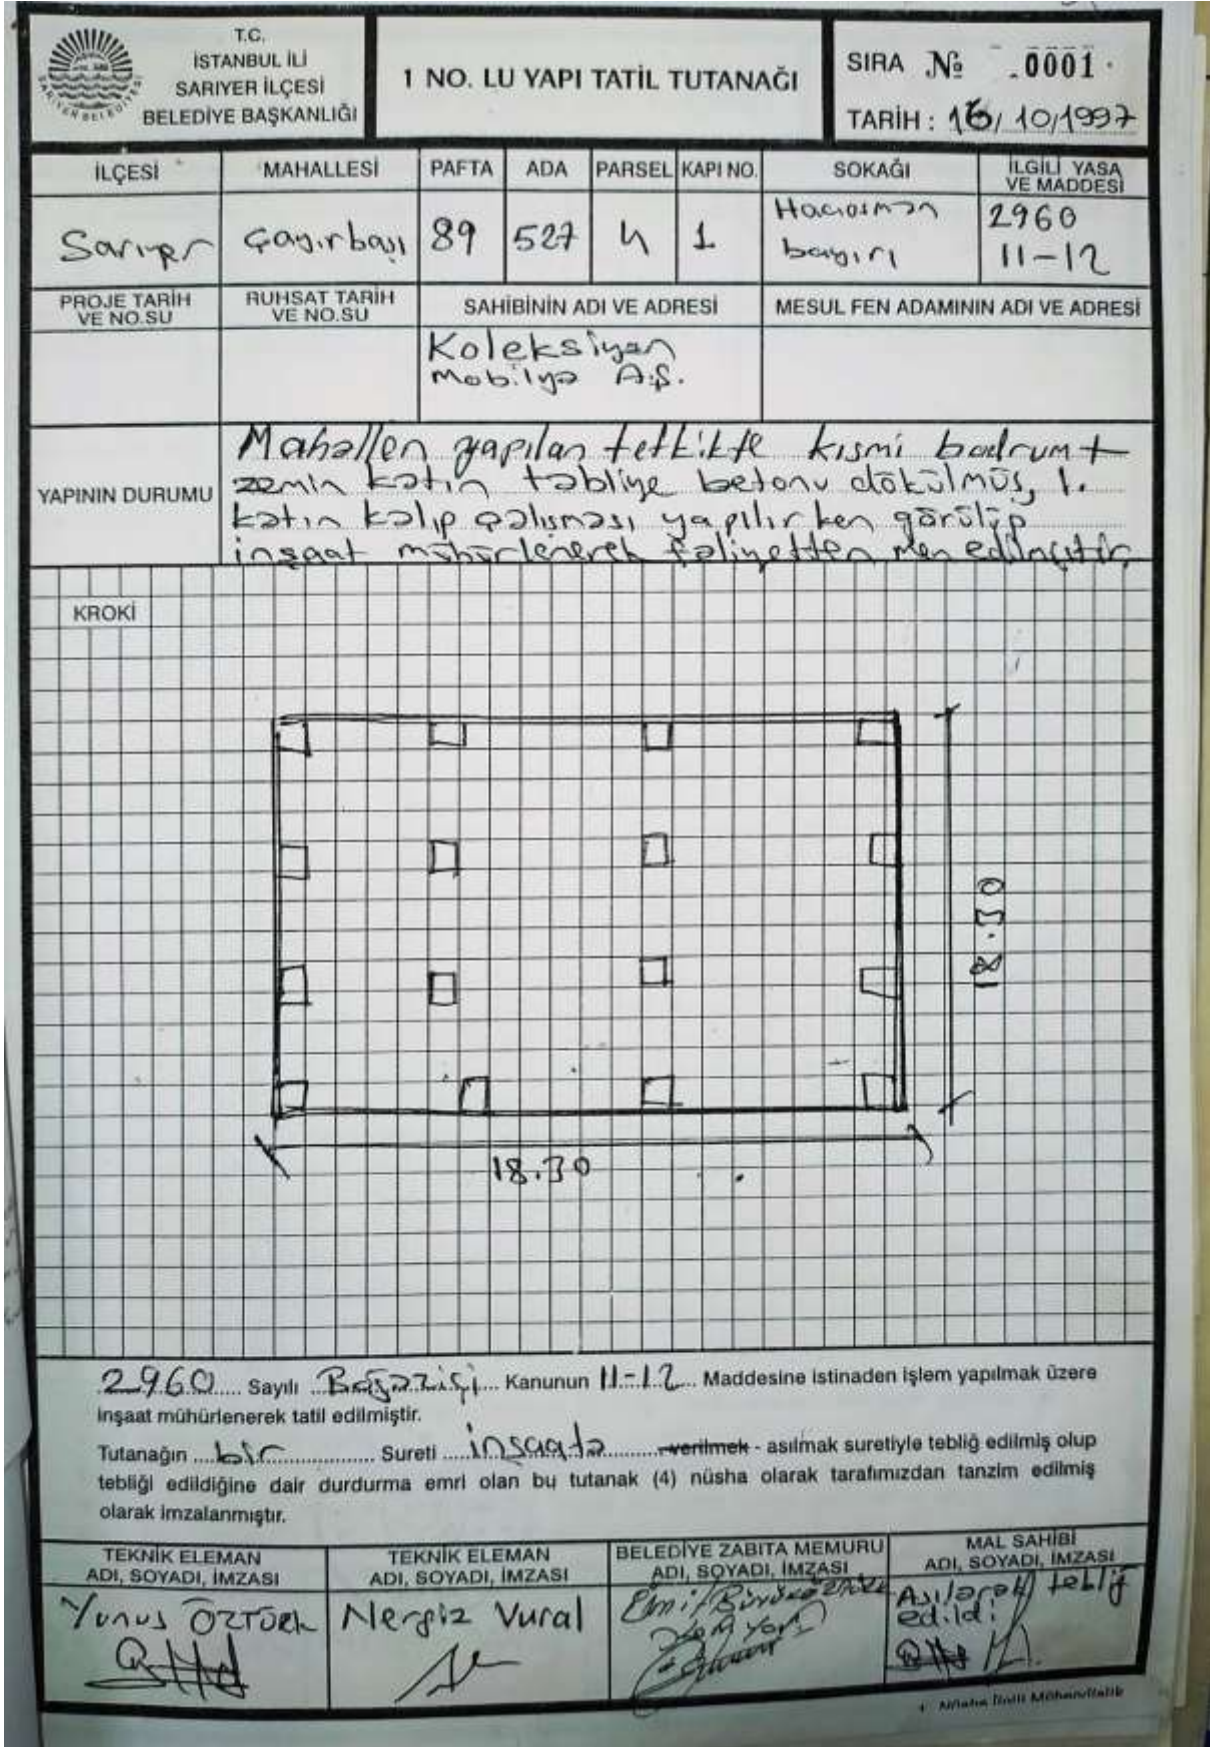 T.C.
İSTANBUL İLİ
SARIYER İLÇESİ
BELEDİYE BAŞKANLIĞI
SARIYER BELEDİYESİ
1 NO. LU YAPI TATİL TUTANAĞI
SIRA № 0001
TARİH : 16/10/1997
İLÇESİ MAHALLESİ PAFTA ADA PARSEL KAPI NO. SOKAĞI İLGİLİ YASA VE MADDESİ
Sarıyer Çayırbaşı 89 527 4 1 Hacıosman bayırı 2960 11-12
PROJE TARİH VE NO.SU RUHSAT TARİH VE NO.SU SAHİBİNİN ADI VE ADRESİ MESUL FEN ADAMININ ADI VE ADRESİ
Koleksiyon
Mobilya A.Ş.
YAPININ DURUMU
Mahallen yapılan tetkikte kısmi bodrum+
zemin katın tabliye betonu dökülmüş, 1.
katın kalıp çalışması yapılırken görülüp
inşaat mühürlenerek faliyetten men edilmiştir.
KROKİ
18.30
18.30
2960 Sayılı Boğaziçi Kanunun 11-12 Maddesine istinaden işlem yapılmak üzere
inşaat mühürlenerek tatil edilmiştir.
Tutanağın bir Sureti inşaata verilmek - asılmak suretiyle tebliğ edilmiş olup
tebliği edildiğine dair durdurma emri olan bu tutanak (4) nüsha olarak tarafımızdan tanzim edilmiş
olarak imzalanmıştır.
TEKNİK ELEMAN
ADI, SOYADI, İMZASI
Yunus ÖZTÜRK
TEKNİK ELEMAN
ADI, SOYADI, İMZASI
Nergiz Vural
BELEDİYE ZABITA MEMURU
ADI, SOYADI, İMZASI
MAL SAHİBİ
ADI, SOYADI, İMZASI
Asılarak tebliğ
edildi